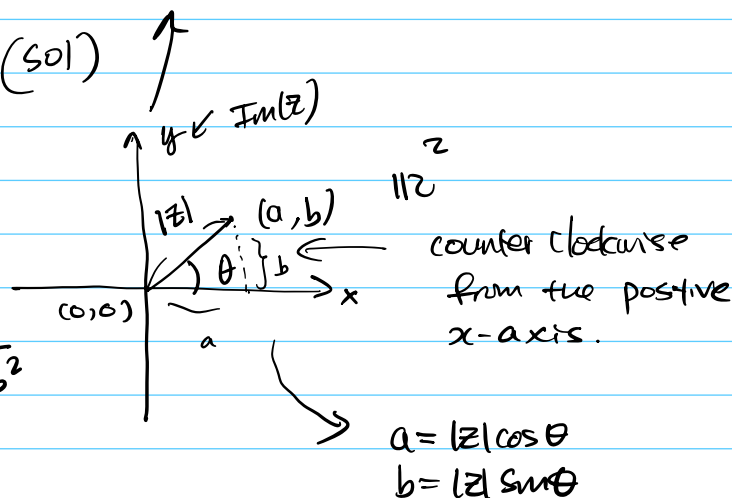 (sol)
y ↙ Im(z)
ℝ²
|z|
(a, b)
θ } b
counter clockwise
from the postive
x-axis.
(0,0)
x
a
2
a = |z| cos θ
b = |z| sin θ